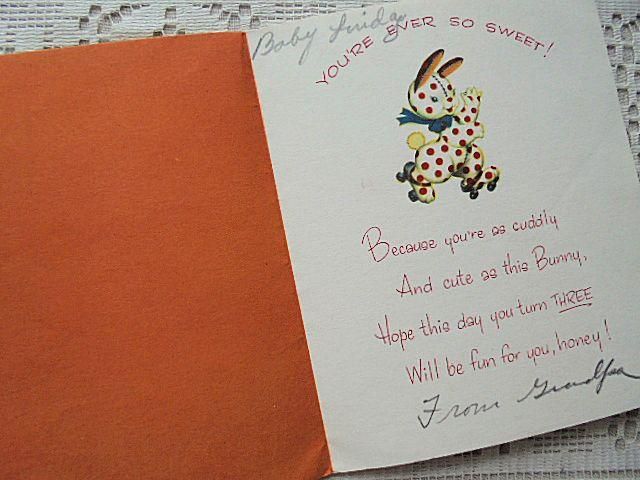 Baby
YOU'RE EVER SO SWEET!
Because you're as cuddly
And cute as this Bunny,
Hope this day you turn THREE
Will be fun for you, honey!
From Grandpa